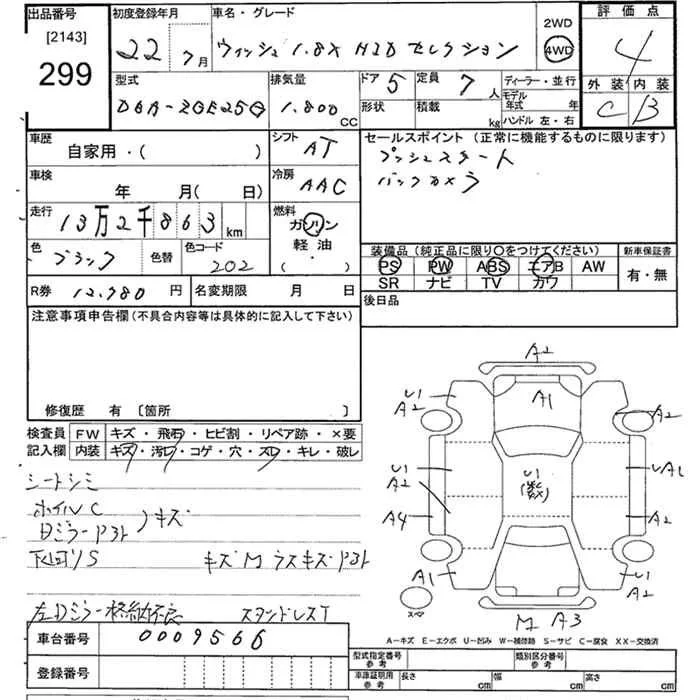 出品番号
[2143]
299
初度登録年月
22年 7月
車名・グレード
ウィッシュ 1.8X HID セレクション
2WD
4WD
評 価 点
4
外 装 内 装
C B
型式
DBA-ZGE25G
排気量
1.800 CC
ドア 5
形状
定員 7 人
積載 kg
ディーラー・並行
モデル年式 年
ハンドル 左・右
車歴
自家用・( )
シフト AT
車検
年 月( 日)
冷房 AAC
走行
13万2千863 km
燃料
ガソリン
軽 油
( ・ )
色 ブラック
色替
色コード 202
セールスポイント (正常に機能するものに限ります)
プッシュスタート
バックカメラ
装備品 (純正品に限り○をつけてください)
PS PW ABS エアB AW
SR ナビ TV カワ
新車保証書
有・無
R券 12,980 円
名変期限 月 日
後日品
注意事項申告欄 (不具合内容等は具体的に記入して下さい)
修復歴 有 〔箇所 〕
検査員 FW キズ・飛石・ヒビ割・リペア跡・×要
記入欄 内装 キズ・汚れ・コゲ・穴・スレ・キレ・破レ
シートシミ
ホイルC
日ミラーPヨト )キズ
下回りS キズM ラスキズPヨト
左Dミラー格納不良 スタンドレスT
A2
U1
A2
A1
A2
U1
A2
U1
UA1
A4
A2
A1
A2
スペア
M A3
A−キズ E−エクボ U−凹み W−補修跡 S−サビ C−腐食 XX−交換済
車台番号 0009566
登録番号
型式指定番号 参考
類別区分番号 参考
車庫証明用 参考
長さ cm
幅 cm
高さ cm